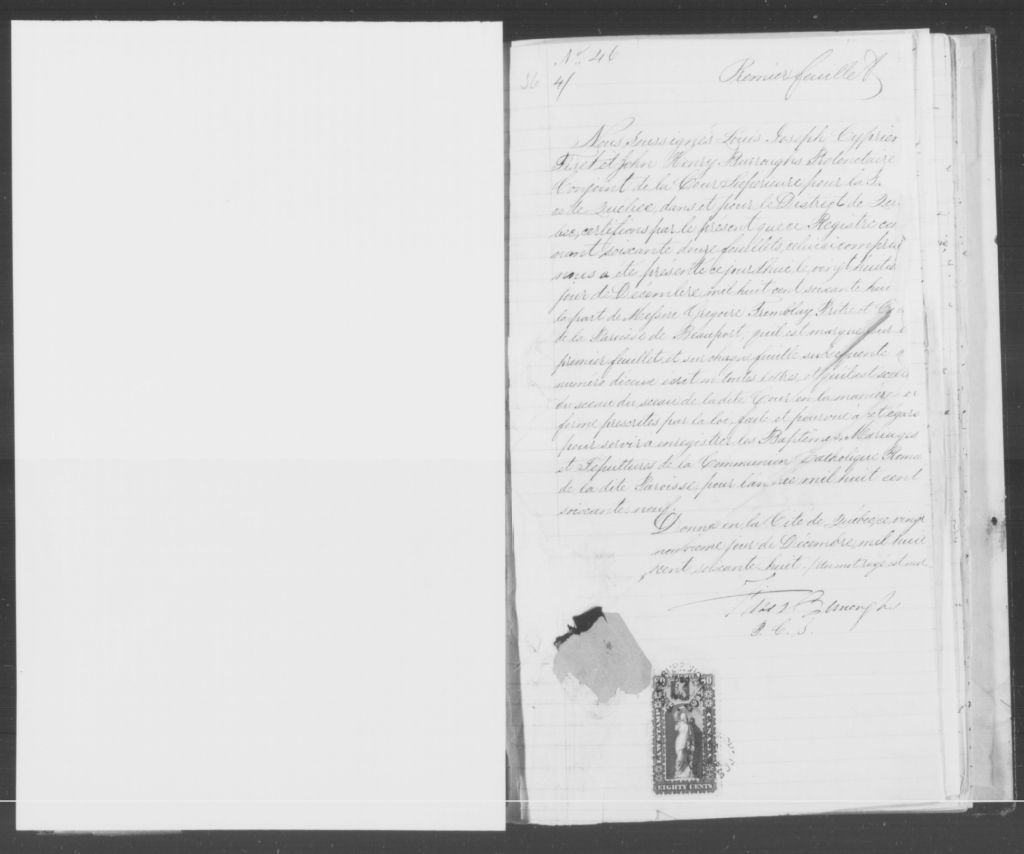 No 46
36
4/
Premier feuillet
Nous soussignés Louis Joseph Cyprien
Fiset et John Henry Burroughs Protonotaire
Conjoint de la Cour Supérieure pour la
ce de Québec, dans et pour le District de Qué
bec, certifions par le présent que ce Registre con
tenant soixante douze feuillets, celui ci compris
nous a été présenté ce jourdhui le vingt huitiè
jour de Décembre mil huit cent soixante huit
la part de Messire Grégoire Tremblay Prêtre et Curé
de la Paroisse de Beauport, qu'il est marqué sur le
premier feuillet et sur chaque feuillet subséquent
numéro écrit en toutes lettres, et qu'il est scellé
du sceau de la dite Cour en la manière et
forme prescrites par la loi, fait et pourvu à cet égard
pour servir a enregistrer les Baptêmes, Mariages
et Sépultures de la Communion Catholique Romai
de la dite Paroisse pour l'année mil huit cent
soixante neuf.
Donné en la Cité de Québec, ce vingt
jour de Décembre, mil huit
cent soixante huit. / Un mot rayé est nul.
Fiset & Burroughs
P. C. S.
80 80
LAW STAMP
CANADA
EIGHTY CENTS